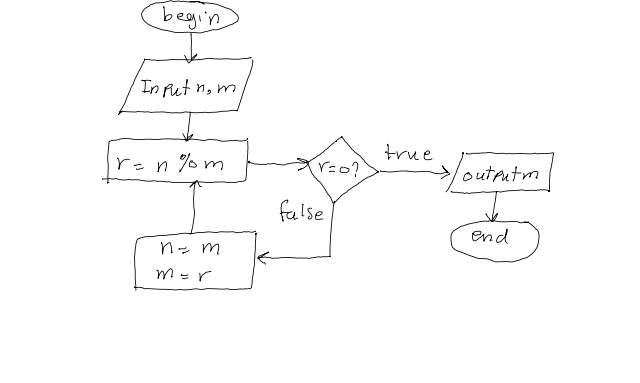 begin
Input n, m
r = n % m
r=0?
true
output m
end
false
n = m
m = r